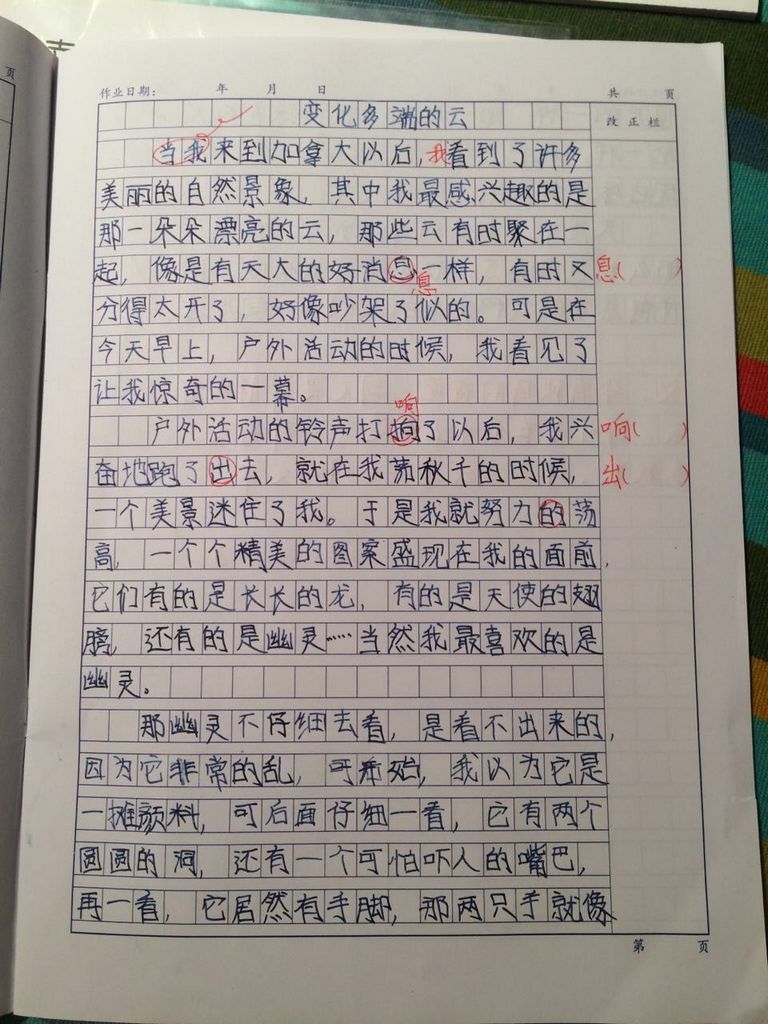 页
作业日期： 年 月 日 共 页
变化多端的云 改正栏
当我来到加拿大以后，我看到了许多
美丽的自然景象，其中我最感兴趣的是
那一朵朵漂亮的云，那些云有时聚在一
起，像是有天大的好消息一样，有时又 息( )
息
分得太开了，好像吵架了似的。可是在
今天早上，户外活动的时候，我看见了
让我惊奇的一幕。
响
户外活动的铃声打响了以后，我兴 响( )
奋地跑了出去，就在我荡秋千的时候， 出( )
一个美景迷住了我。于是我就努力的荡
高，一个个精美的图案盛现在我的面前，
它们有的是长长的龙，有的是天使的翅
膀，还有的是幽灵……当然我最喜欢的是
幽灵。
那幽灵不仔细去看，是看不出来的，
因为它非常的乱，可开始，我以为它是
一摊颜料，可后面仔细一看，它有两个
圆圆的洞，还有一个可怕吓人的嘴巴，
再一看，它居然有手脚，那两只手就像
第 页